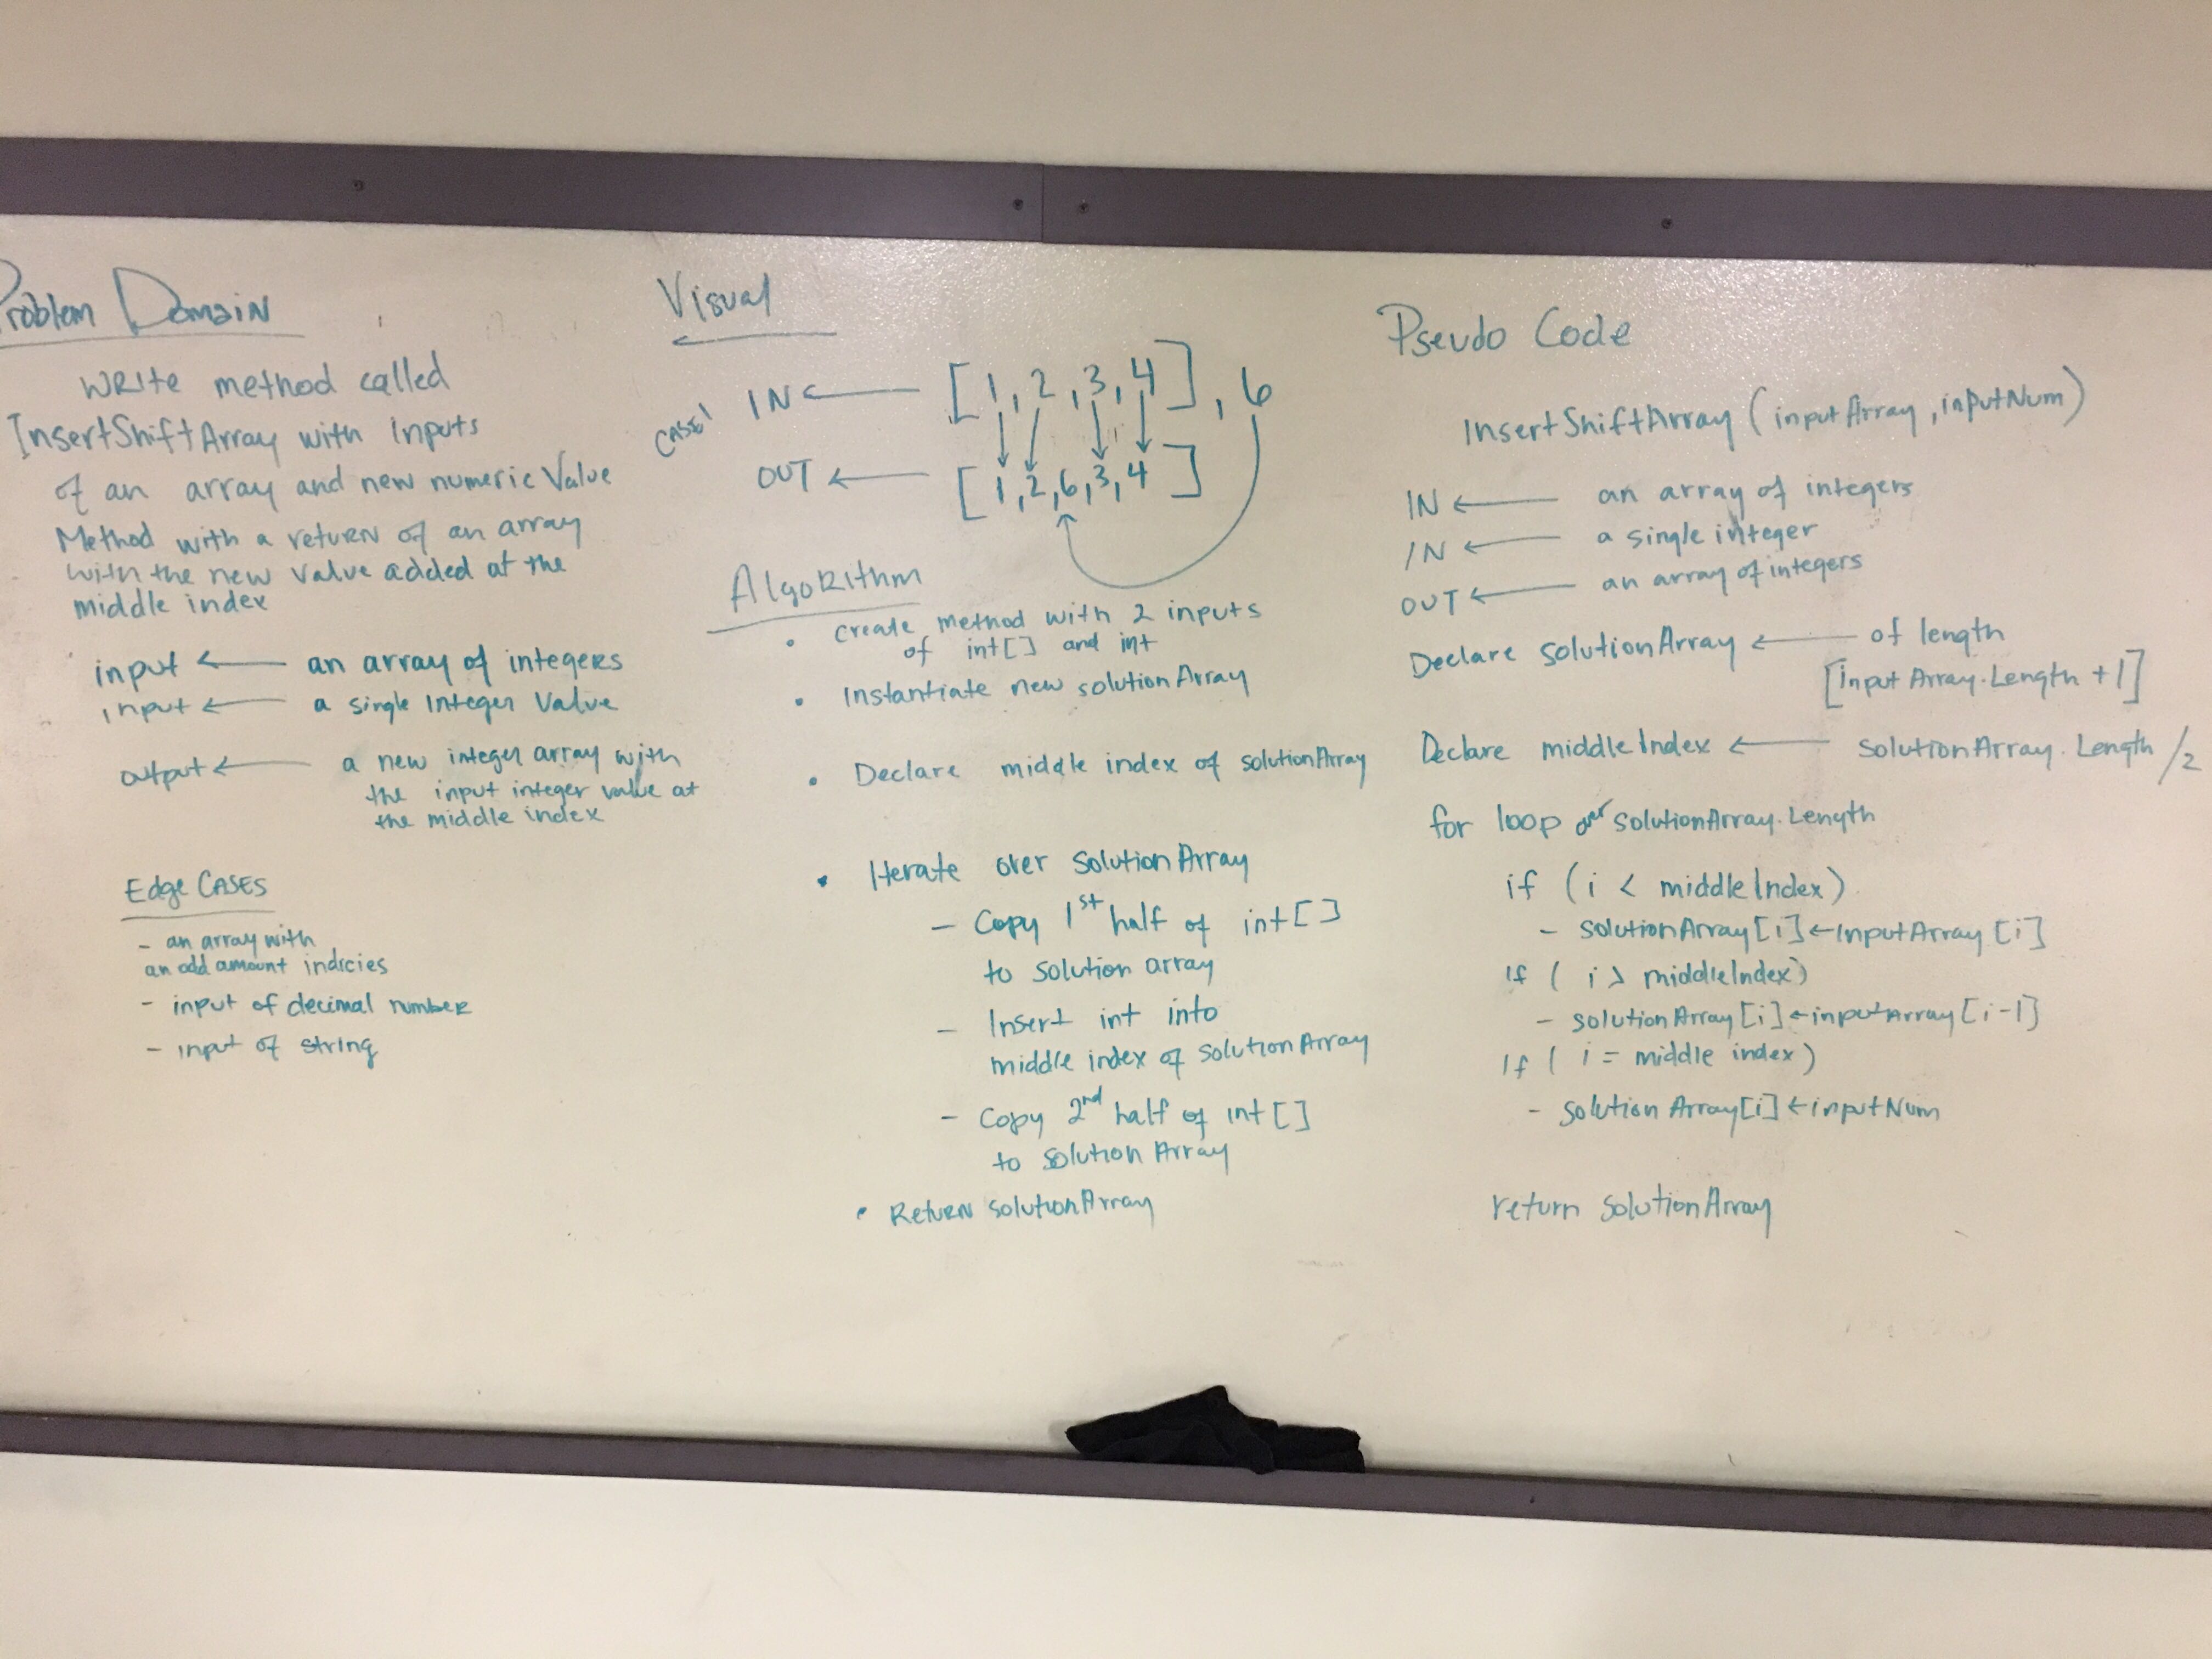 Problem Domain
Write method called
InsertShiftArray with Inputs
of an array and new numeric Value
Method with a return of an array
with the new value added at the
middle index
input ← an array of integers
input ← a single Integer Value
output ← a new integer array with
the input integer value at
the middle index
Edge Cases
- an array with
an odd amount indicies
- input of decimal number
- input of string
Visual
Case 1
IN ← [1, 2, 3, 4], 6
OUT ← [1, 2, 6, 3, 4]
Algorithm
• Create method with 2 inputs
of int[] and int
• Instantiate new solutionArray
• Declare middle index of solutionArray
• Iterate over SolutionArray
- Copy 1st half of int[]
to solution array
- Insert int into
middle index of SolutionArray
- Copy 2nd half of int[]
to solution Array
• Return solutionArray
Pseudo Code
InsertShiftArray (inputArray, inputNum)
IN ← an array of integers
IN ← a single integer
OUT ← an array of integers
Declare solutionArray ← of length
[inputArray.Length + 1]
Declare middleIndex ← solutionArray.Length/2
for loop over solutionArray.Length
if (i < middleIndex)
- solutionArray[i] ← inputArray[i]
if ( i > middleIndex)
- solutionArray[i] ← inputArray[i-1]
if ( i = middle index)
- solution Array[i] ← inputNum
return solutionArray